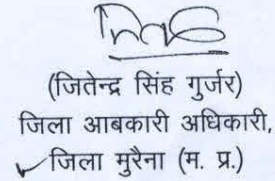 (जितेन्द्र सिंह गुर्जर)
जिला आबकारी अधिकारी,
जिला मुरैना (म. प्र.)